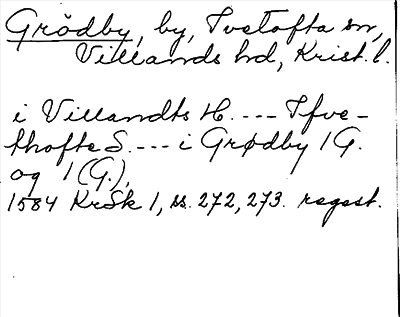 Grödby, by, Ivetofta sn,
Villands hd, Krist. l.
i Villandts H. --- Ifve-
thofte S. --- i Grødby 1 G.
og 1 (G.),
1584 KrSk 1, ss. 272, 273. regest.